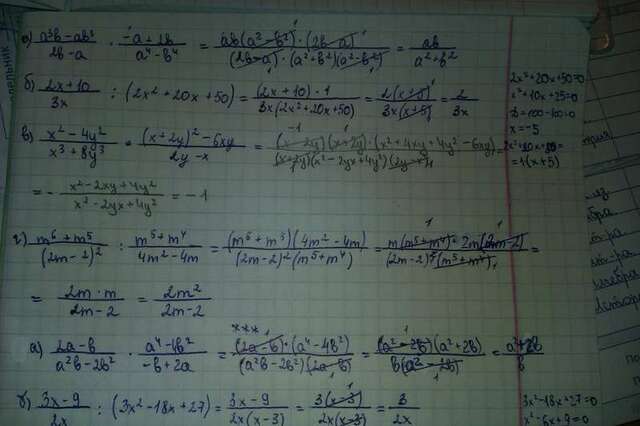 а) (a³b − ab³)/(2b − a) · (−a + 2b)/(a⁴ − b⁴) = (ab(a² − b²) · (2b − a))/((2b − a) · (a² + b²)(a² − b²)) = ab/(a² + b²)
б) (2x + 10)/(3x) : (2x² + 20x + 50) = ((2x + 10) · 1)/(3x(2x² + 20x + 50)) = (2(x + 5))/(3x(x + 5)) = 2/(3x)
2x² + 20x + 50 = 0
x² + 10x + 25 = 0
D = 100 − 100 = 0
x = −5
= 1(x + 5)
в) (x² − 4y²)/(x³ + 8y³) · ((x + 2y)² − 6xy)/(2y − x) = ((x − 2y)(x + 2y) · (x² + 4xy + 4y² − 6xy))/((x + 2y)(x² − 2yx + 4y²)(2y − x)) =
= − (x² − 2xy + 4y²)/(x² − 2yx + 4y²) = −1
г) (m⁶ + m⁵)/(2m − 2)² : (m⁵ + m⁴)/(4m² − 4m) = ((m⁶ + m⁵)(4m² − 4m))/((2m − 2)²(m⁵ + m⁴)) = (m(m⁵ + m⁴) · 2m(2m − 2))/((2m − 2)²(m⁵ + m⁴)) =
= (2m · m)/(2m − 2) = 2m²/(2m − 2)
***
а) (2a − b)/(a²b − 2b²) · (a⁴ − 4b²)/(−b + 2a) = ((2a − b) · (a⁴ − 4b²))/((a²b − 2b²)(2a − b)) = ((a² − 2b)(a² + 2b))/(b(a² − 2b)) = (a² + 2b)/b
б) (3x − 9)/(2x) : (3x² − 18x + 27) = (3x − 9)/(2x(x − 3)) = (3(x − 3))/(2x(x − 3)) = 3/(2x)
3x² − 18x + 27 = 0
x² − 6x + 9 = 0